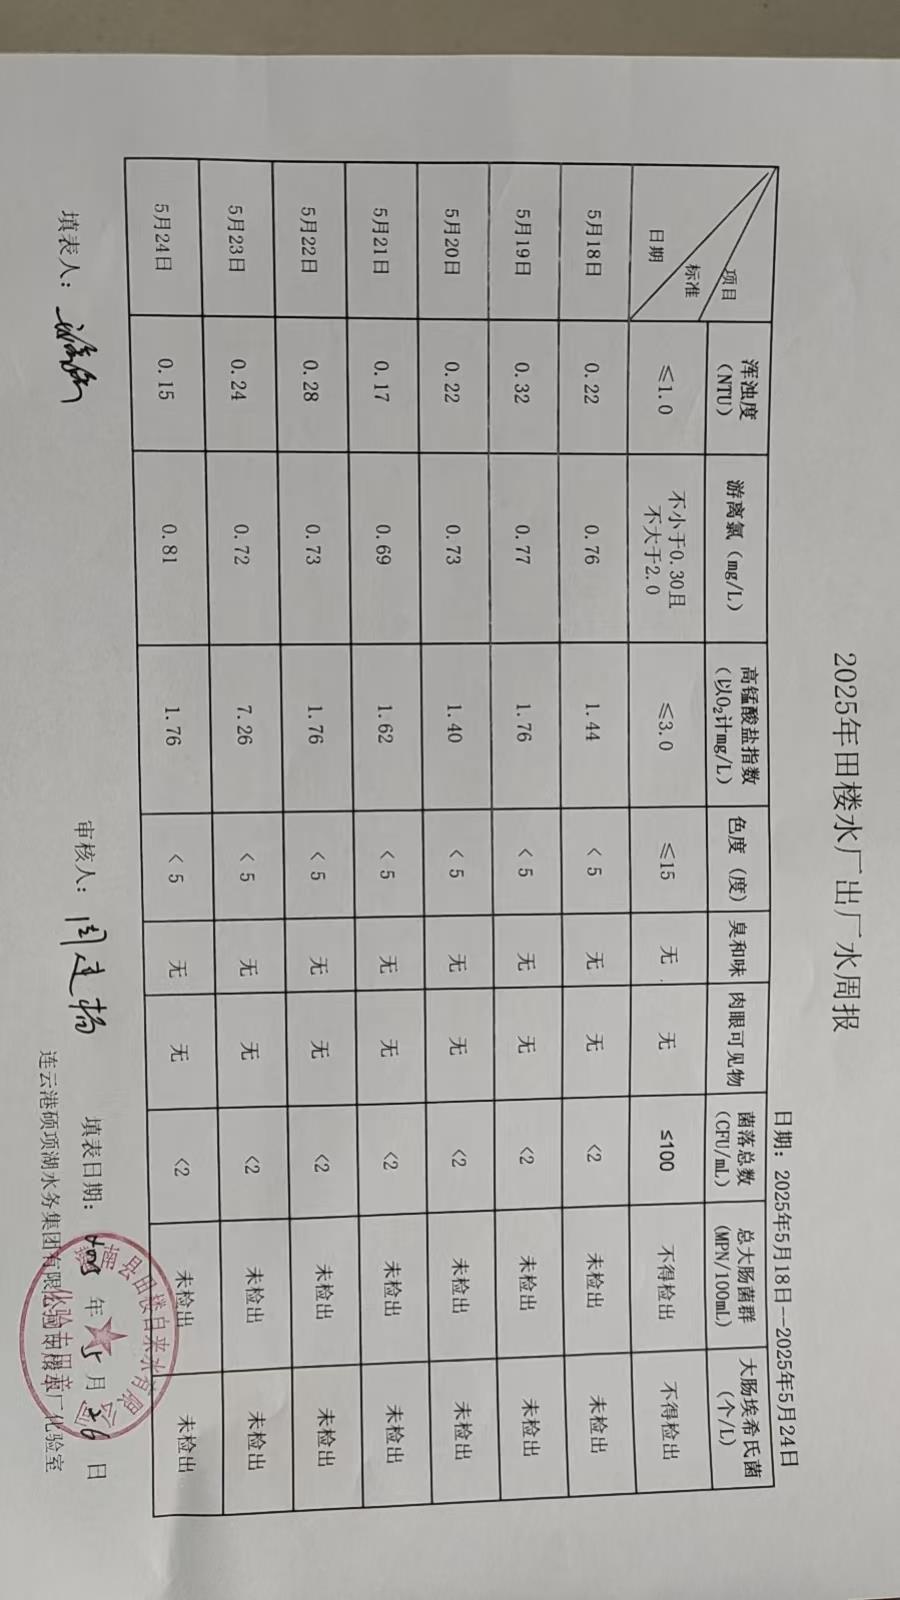 2025年田楼水厂出厂水周报
日期：2025年5月18日--2025年5月24日
项目 标准 日期 浑浊度（NTU） 游离氯（mg/L） 高锰酸盐指数（以O₂计mg/L） 色度（度） 臭和味 肉眼可见物 菌落总数（CFU/mL） 总大肠菌群（MPN/100mL） 大肠埃希氏菌（个/L）
≤1.0 不小于0.30且不大于2.0 ≤3.0 ≤15 无 无 ≤100 不得检出 不得检出
5月18日 0.22 0.76 1.44 ＜5 无 无 <2 未检出 未检出
5月19日 0.32 0.77 1.76 ＜5 无 无 <2 未检出 未检出
5月20日 0.22 0.73 1.40 ＜5 无 无 <2 未检出 未检出
5月21日 0.17 0.69 1.62 ＜5 无 无 <2 未检出 未检出
5月22日 0.28 0.73 1.76 ＜5 无 无 <2 未检出 未检出
5月23日 0.24 0.72 7.26 ＜5 无 无 <2 未检出 未检出
5月24日 0.15 0.81 1.76 ＜5 无 无 <2 未检出 未检出
填表人： 审核人：周建杨 填表日期：2025年5月26日
连云港硕项湖水务集团有限 厂化验室
南县田楼自来水 公司